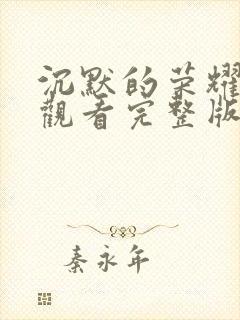 沉默的荣耀
觀看完整版
秦永年